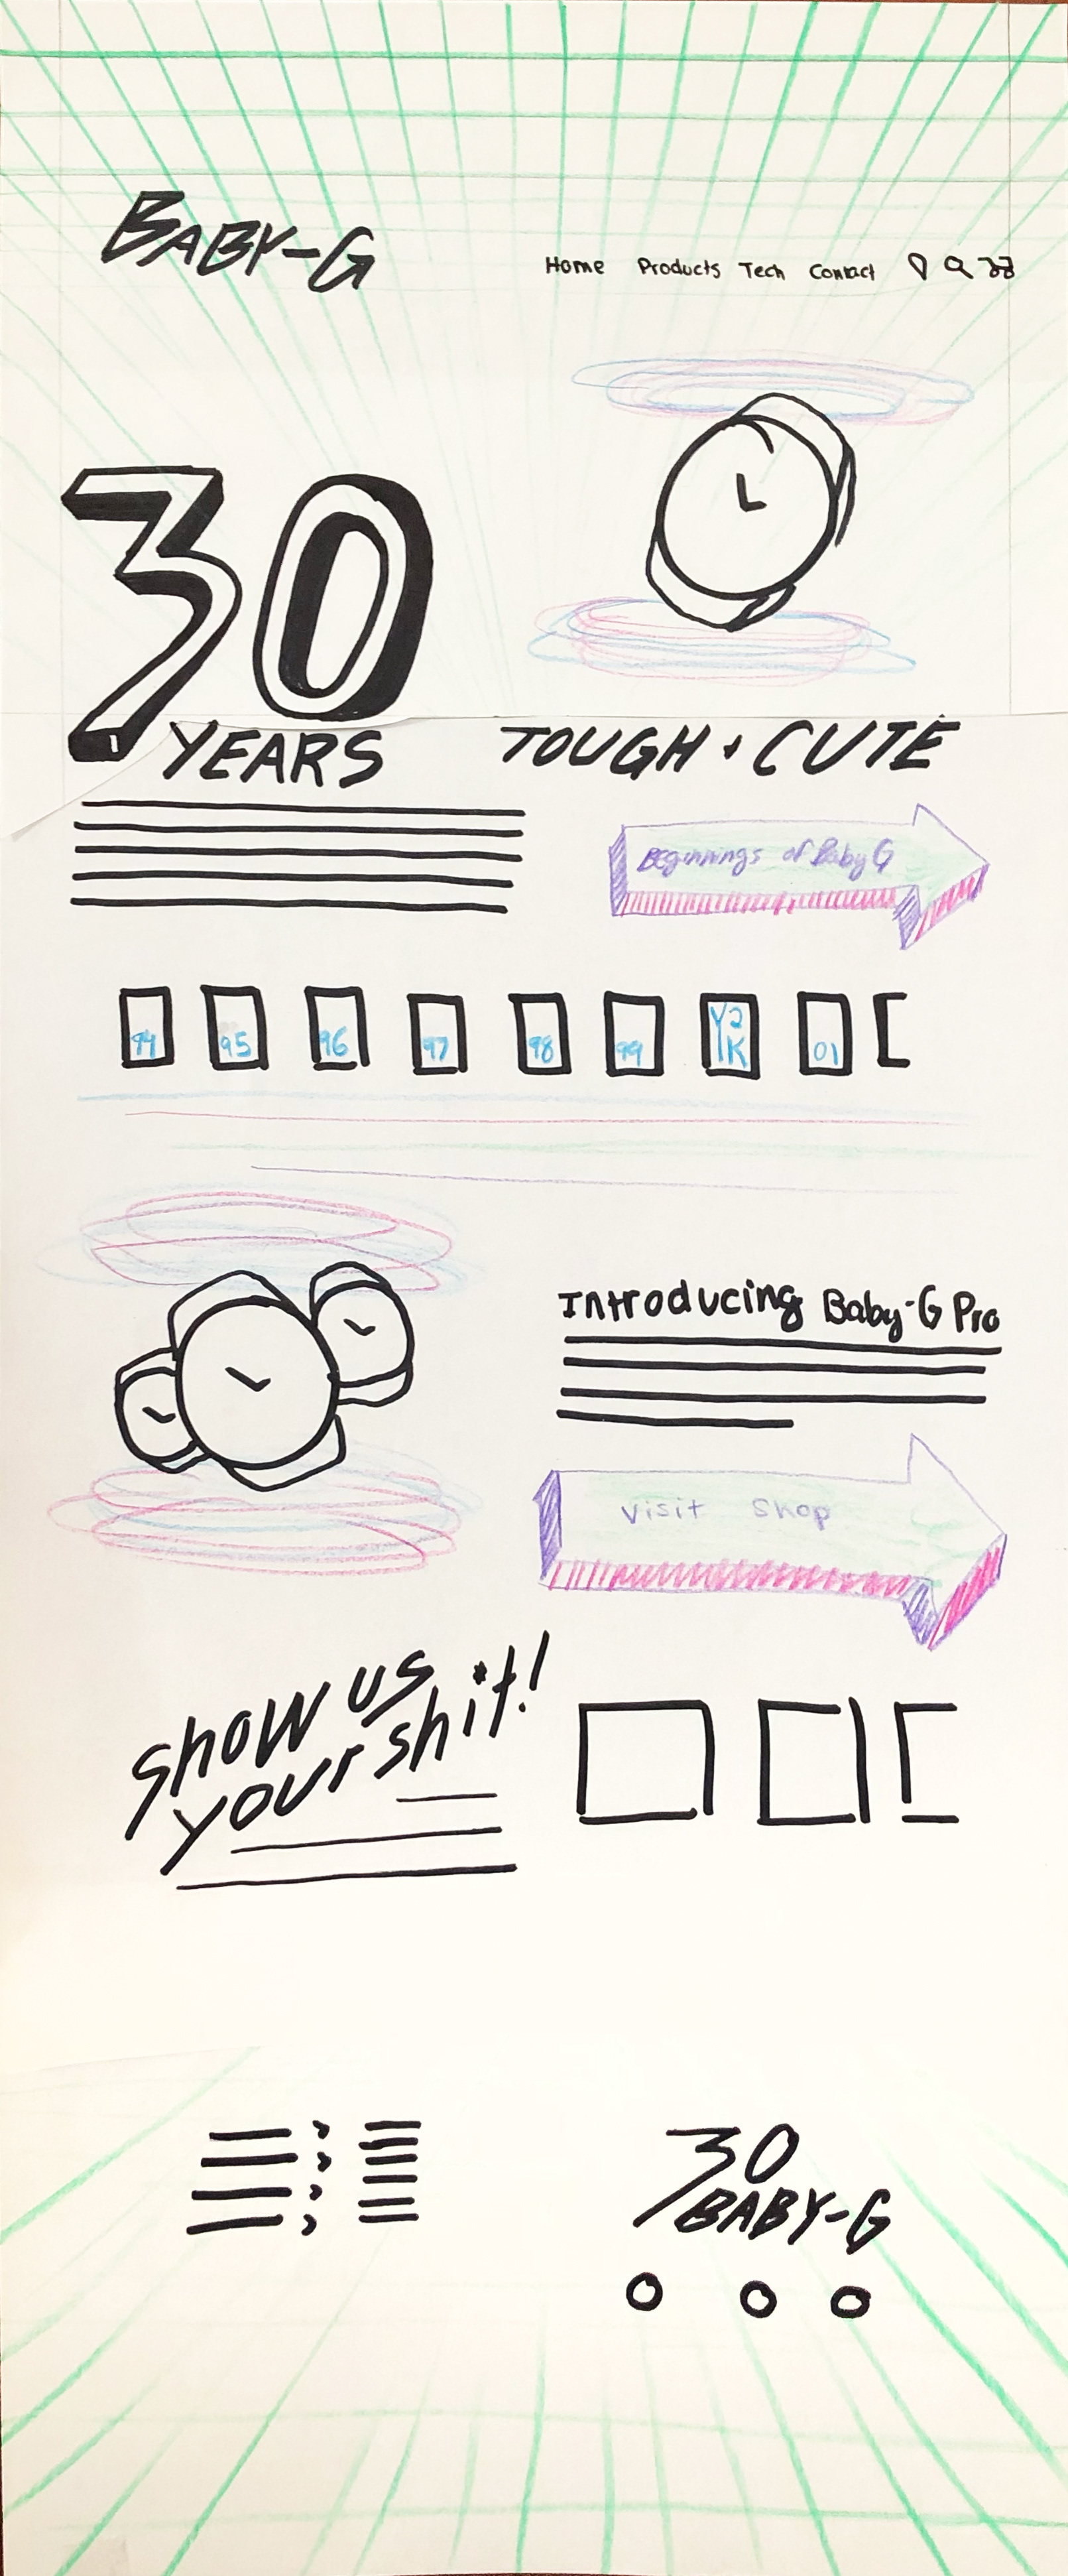 BABY-G
Home Products Tech Contact
30
YEARS
TOUGH + CUTE
Beginnings of Baby G
94 95 96 97 98 99 Y2K 01
Introducing Baby-G Pro
Visit Shop
Show us
your shit!
30
BABY-G